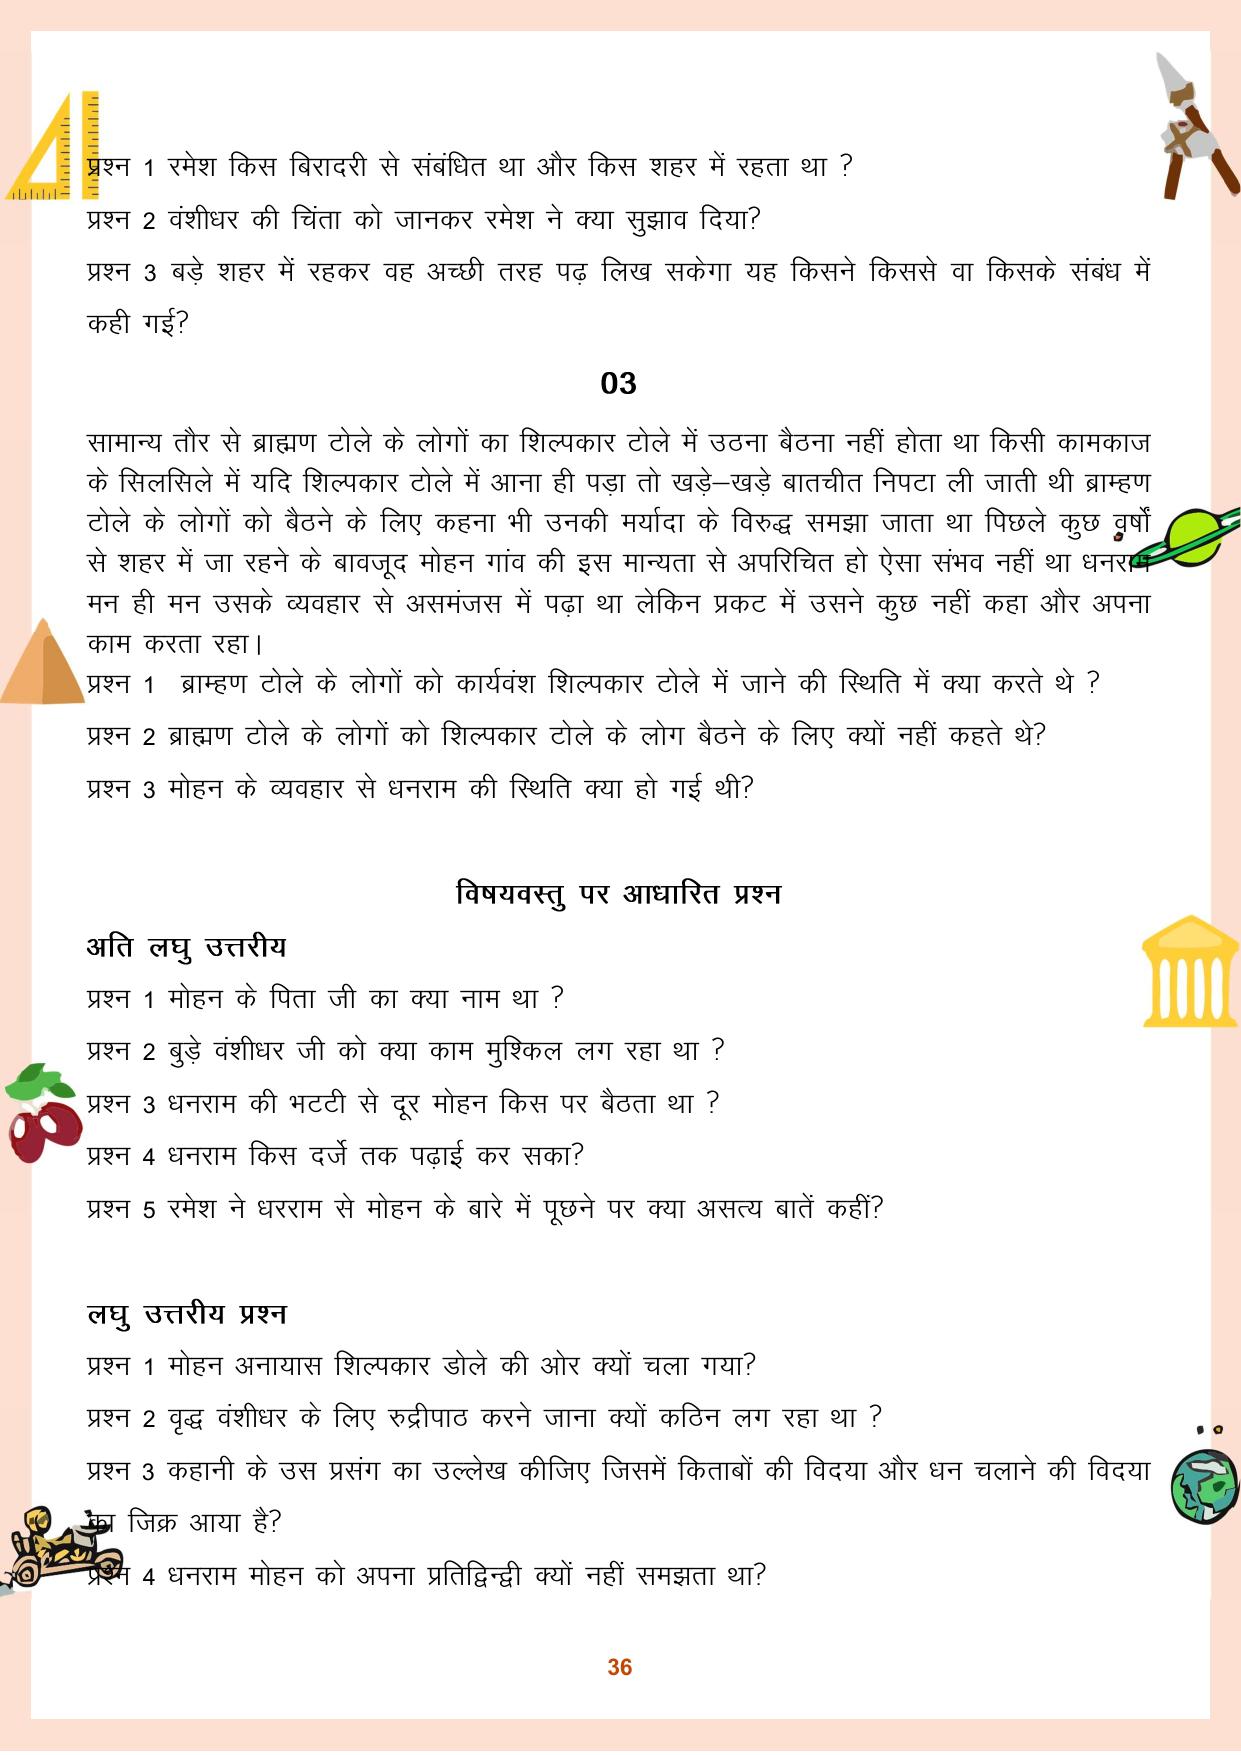 प्रश्न 1 रमेश किस बिरादरी से संबंधित था और किस शहर में रहता था ?
प्रश्न 2 वंशीधर की चिंता को जानकर रमेश ने क्या सुझाव दिया?
प्रश्न 3 बड़े शहर में रहकर वह अच्छी तरह पढ़ लिख सकेगा यह किसने किससे वा किसके संबंध में
कही गई?
03
सामान्य तौर से ब्राह्मण टोले के लोगों का शिल्पकार टोले में उठना बैठना नहीं होता था किसी कामकाज
के सिलसिले में यदि शिल्पकार टोले में आना ही पड़ा तो खड़े–खड़े बातचीत निपटा ली जाती थी ब्राम्हण
टोले के लोगों को बैठने के लिए कहना भी उनकी मर्यादा के विरुद्ध समझा जाता था पिछले कुछ वर्षों
से शहर में जा रहने के बावजूद मोहन गांव की इस मान्यता से अपरिचित हो ऐसा संभव नहीं था धनराम
मन ही मन उसके व्यवहार से असमंजस में पढ़ा था लेकिन प्रकट में उसने कुछ नहीं कहा और अपना
काम करता रहा।
प्रश्न 1 ब्राम्हण टोले के लोगों को कार्यवंश शिल्पकार टोले में जाने की स्थिति में क्या करते थे ?
प्रश्न 2 ब्राह्मण टोले के लोगों को शिल्पकार टोले के लोग बैठने के लिए क्यों नहीं कहते थे?
प्रश्न 3 मोहन के व्यवहार से धनराम की स्थिति क्या हो गई थी?
विषयवस्तु पर आधारित प्रश्न
अति लघु उत्तरीय
प्रश्न 1 मोहन के पिता जी का क्या नाम था ?
प्रश्न 2 बुड़े वंशीधर जी को क्या काम मुश्किल लग रहा था ?
प्रश्न 3 धनराम की भटटी से दूर मोहन किस पर बैठता था ?
प्रश्न 4 धनराम किस दर्जे तक पढ़ाई कर सका?
प्रश्न 5 रमेश ने धरराम से मोहन के बारे में पूछने पर क्या असत्य बातें कहीं?
लघु उत्तरीय प्रश्न
प्रश्न 1 मोहन अनायास शिल्पकार डोले की ओर क्यों चला गया?
प्रश्न 2 वृद्ध वंशीधर के लिए रुद्रीपाठ करने जाना क्यों कठिन लग रहा था ?
प्रश्न 3 कहानी के उस प्रसंग का उल्लेख कीजिए जिसमें किताबों की विदया और धन चलाने की विदया
का जिक्र आया है?
प्रश्न 4 धनराम मोहन को अपना प्रतिद्विन्द्वी क्यों नहीं समझता था?
36